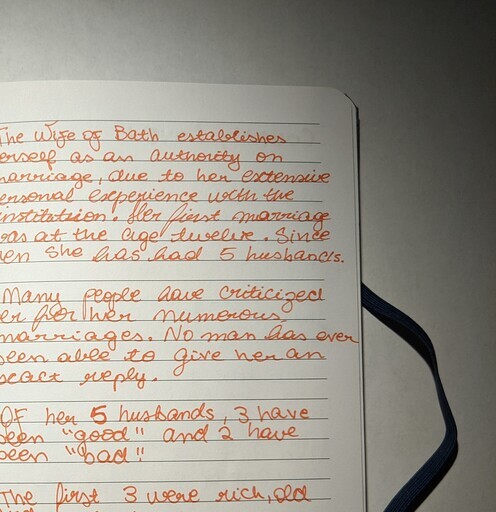 The Wife of Bath establishes
erself as an authority on
arriage, due to her extensive
ersonal experience with the
institution. Her first marriage
as at the age twelve. Since
en she has had 5 husbands.
Many people have criticized
er for her numerous
marriages. No man has ever
been able to give her an
exact reply.
Of her 5 husbands, 3 have
been "good" and 2 have
been "bad"!
The first 3 were rich, old